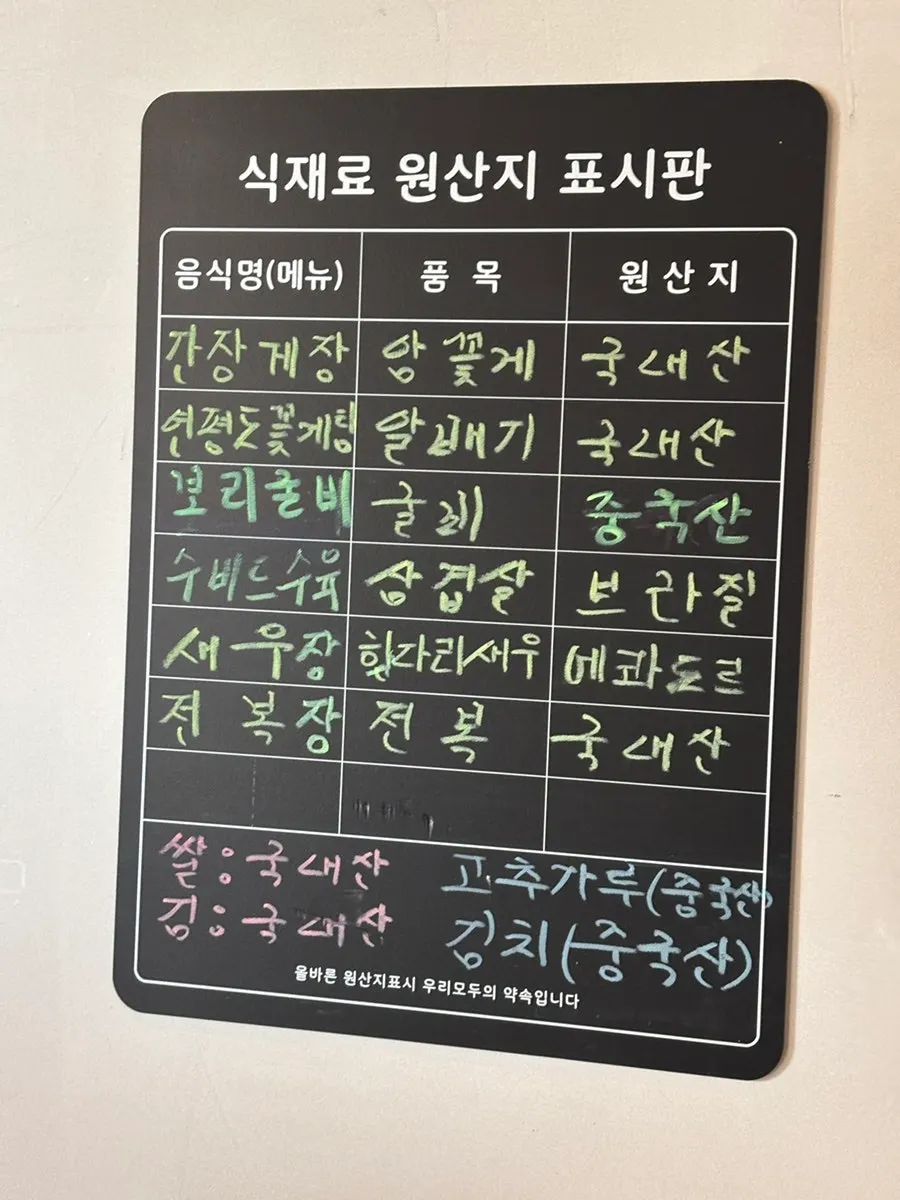 식재료 원산지 표시판
음식명(메뉴) 품 목 원 산 지
간장게장 암꽃게 국내산
연평도꽃게탕 알배기 국내산
보리굴비 굴비 중국산
수비드수육 삼겹살 브라질
새우장 흰다리새우 에콰도르
전복장 전복 국내산
쌀: 국내산 고추가루(중국산)
김: 국내산 김치(중국산)
올바른 원산지표시 우리모두의 약속입니다